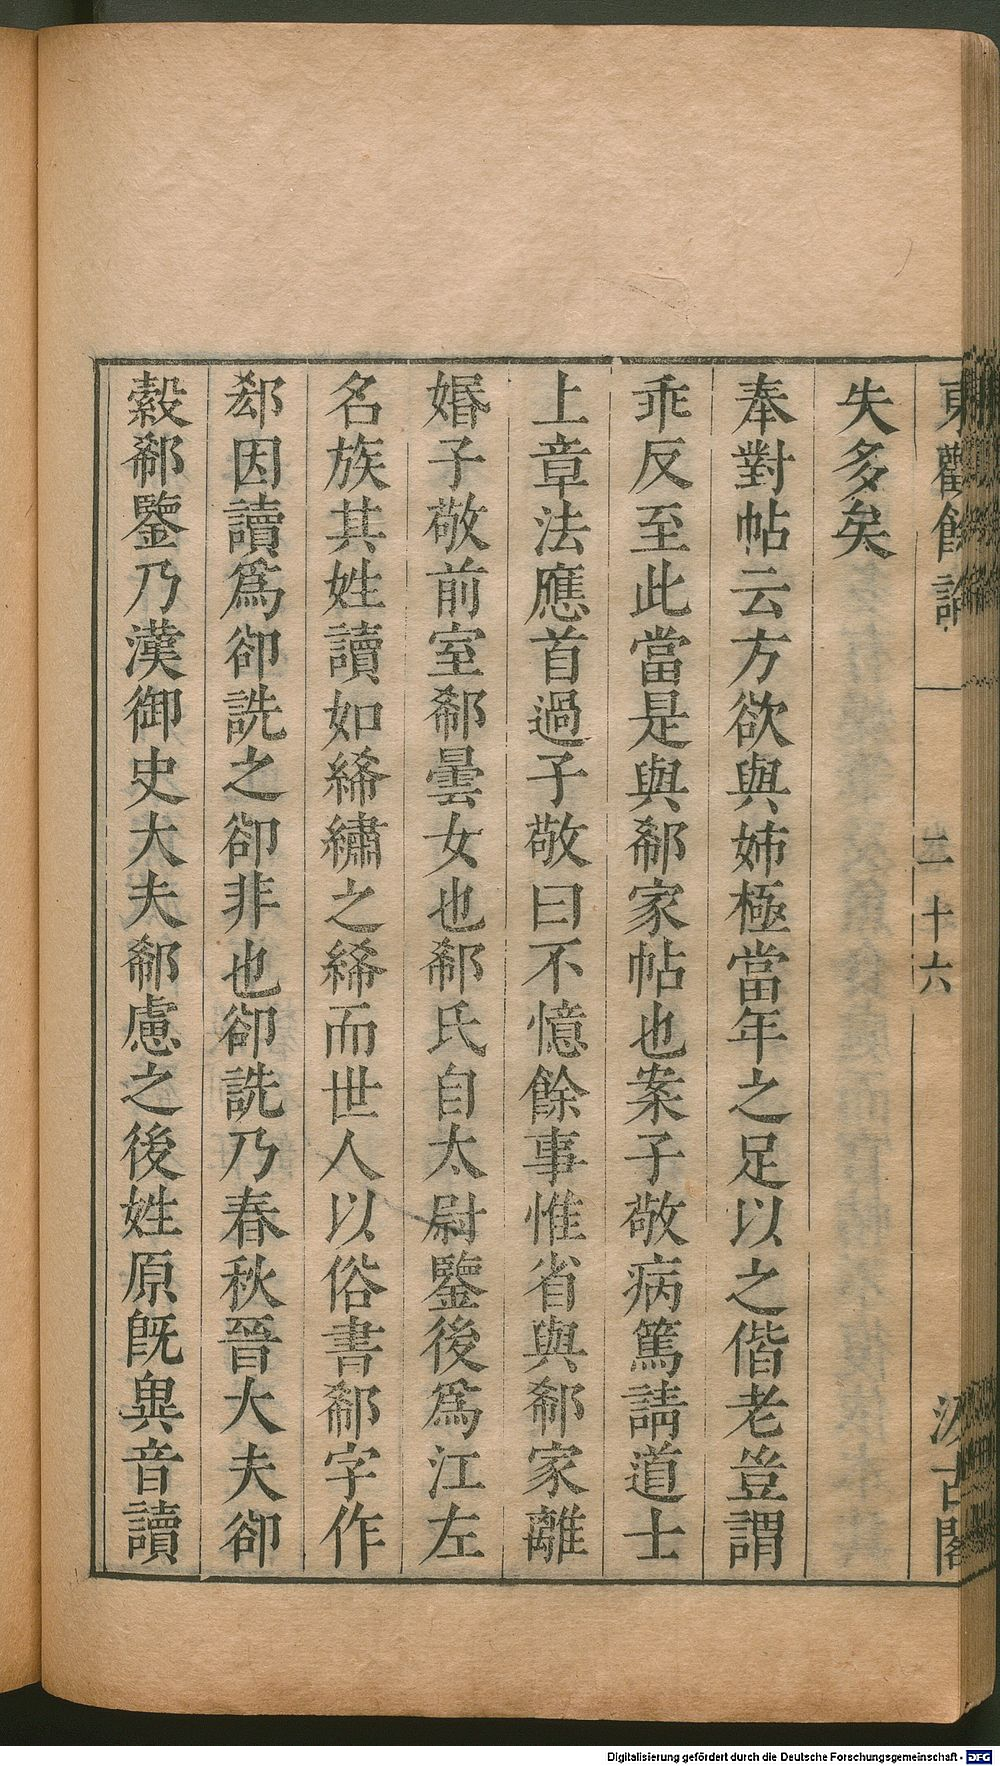 東觀餘論 二十六 汲古閣
失多矣
奉對帖云方欲與姉極當年之足以之偕老豈謂
乖反至此當是與郗家帖也案子敬病篤請道士
上章法應首過子敬曰不憶餘事惟省與郗家離
婚子敬前室郗曇女也郗氏自太尉鑒後爲江左
名族其姓讀如絺繡之絺而世人以俗書郗字作
郄因讀爲卻詵之卻非也卻詵乃春秋晉大夫卻
縠郗鑒乃漢御史大夫郗慮之後姓原旣異音讀
Digitalisierung gefördert durch die Deutsche Forschungsgemeinschaft - DFG